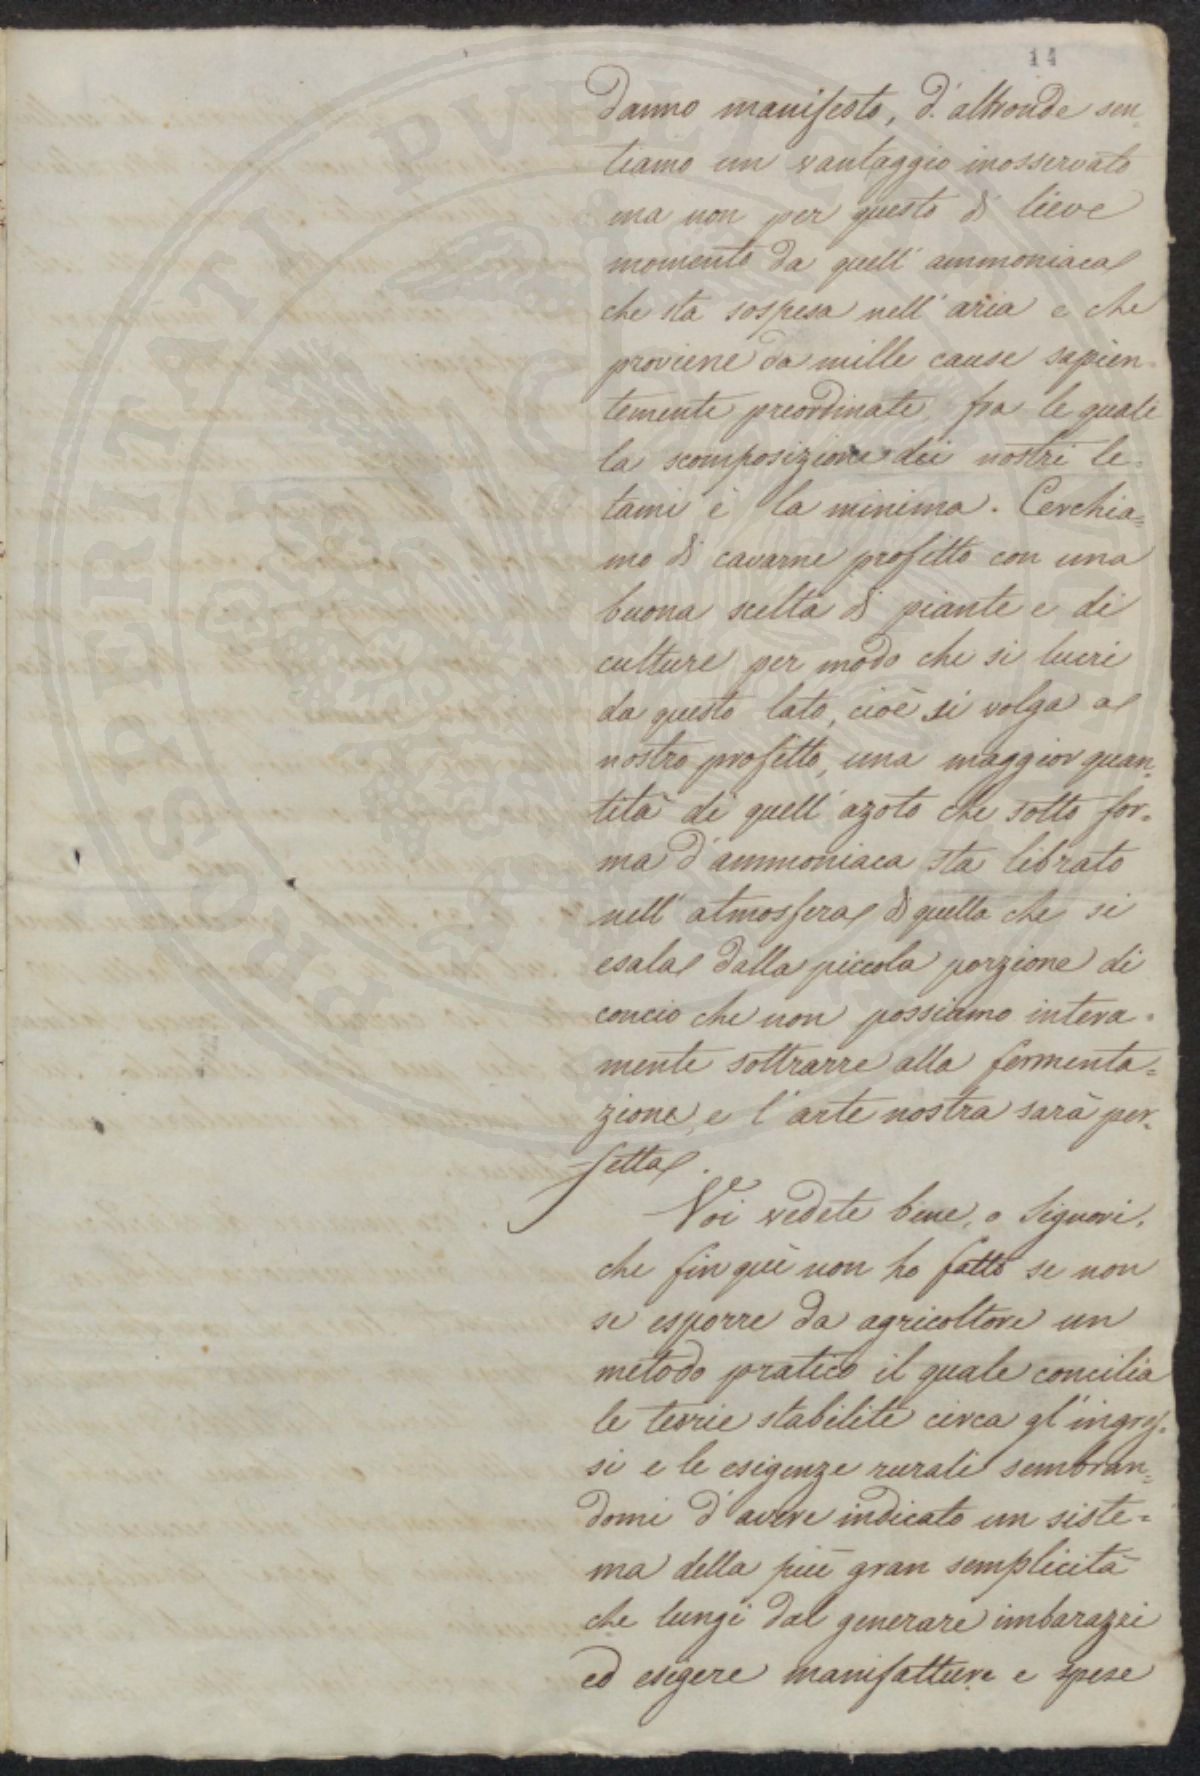 14
danno manifesto, d'altronde sen-
tiamo un vantaggio inosservato
ma non per questo di lieve
momento da quell'ammoniaca
che sta sospesa nell'aria e che
proviene da mille cause sapien-
temente preordinate, fra le quali
la scomposizione dei nostri le-
tami è la minima. Cerchia=
mo di cavarne profitto con una
buona scelta di piante e di
culture per modo che si lucri
da questo lato, cioè si volga a
nostro profitto, una maggior quan-
tità di quell'azoto che sotto for-
ma d'ammoniaca sta librato
nell'atmosfera di quella che si
esala dalla piccola porzione di
concio che non possiamo intera-
mente sottrarre alla fermenta=
zione, e l'arte nostra sarà per-
fetta.
Voi vedete bene, o Signori,
che fin quì non ho fatto se non
se esporre da agricoltore un
metodo pratico il quale concilia
le teorie stabilite circa gl'ingras-
si e le esigenze rurali sembran=
domi d'avere indicato un siste=
ma della più gran semplicità
che lungi dal generare imbarazzi
ed esigere manifatture e spese
PROSPERITATI PVBLICAE